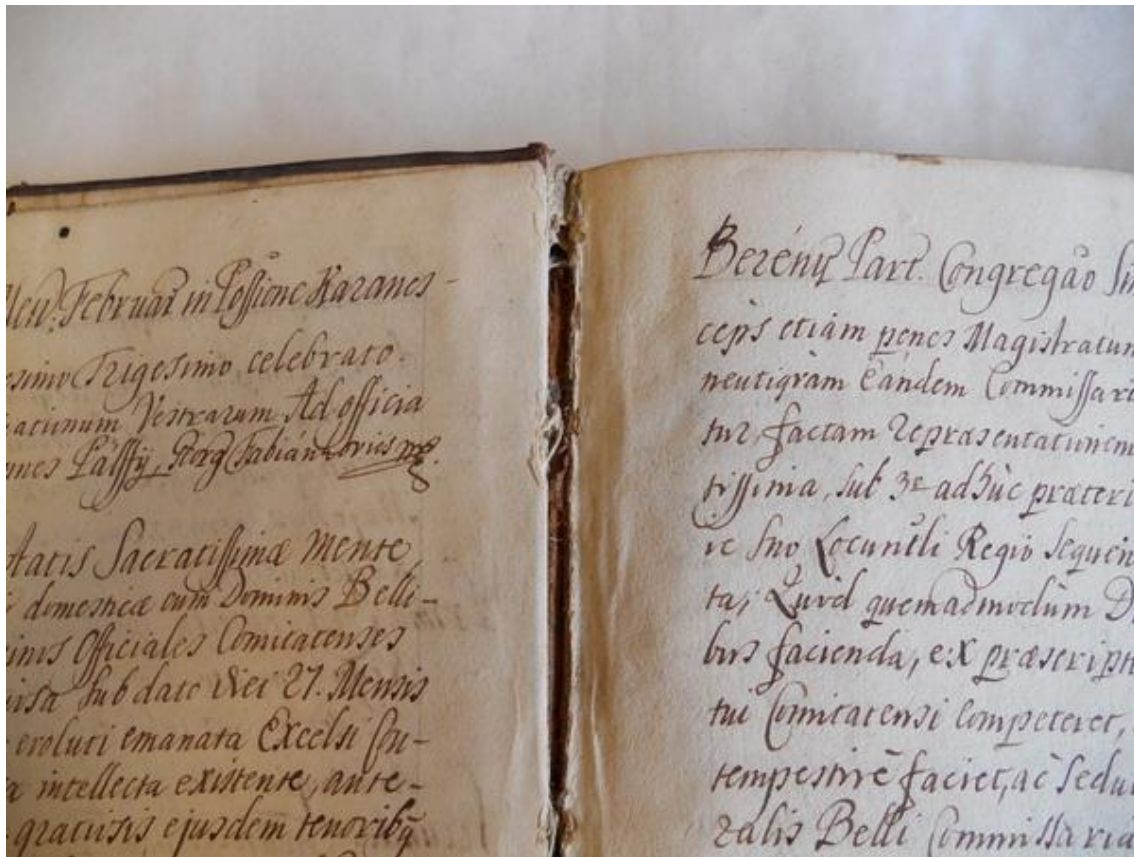 Februar in Possione Karancs-
Trigesimo celebrato.
Vestrarum Ad officia
Pálffy, Georg Fabiánkovics mp.
Sacratissimæ Mente,
domesticæ cum Dominis Belli-
Officiales Comitatenses
sub dato diei 27. Mensis
evoluti emanata Excelsi Con-
intellecta existente, ante-
gratiosis ejusdem tenoribq
Berényi Part. Congregão
ceps etiám penes Magistratum
neutiqvàm Eándem Commissari
tur, factam Repræsentationem
tissima, sub 3a adhùc præteri
Locuntli Regio Sequen
ta; Quod quemadmodùm
bus facienda, ex præscript
tui Comitatensi Competeret,
tempestivè faciet, ac Sedul
ralis Belli Commissaria